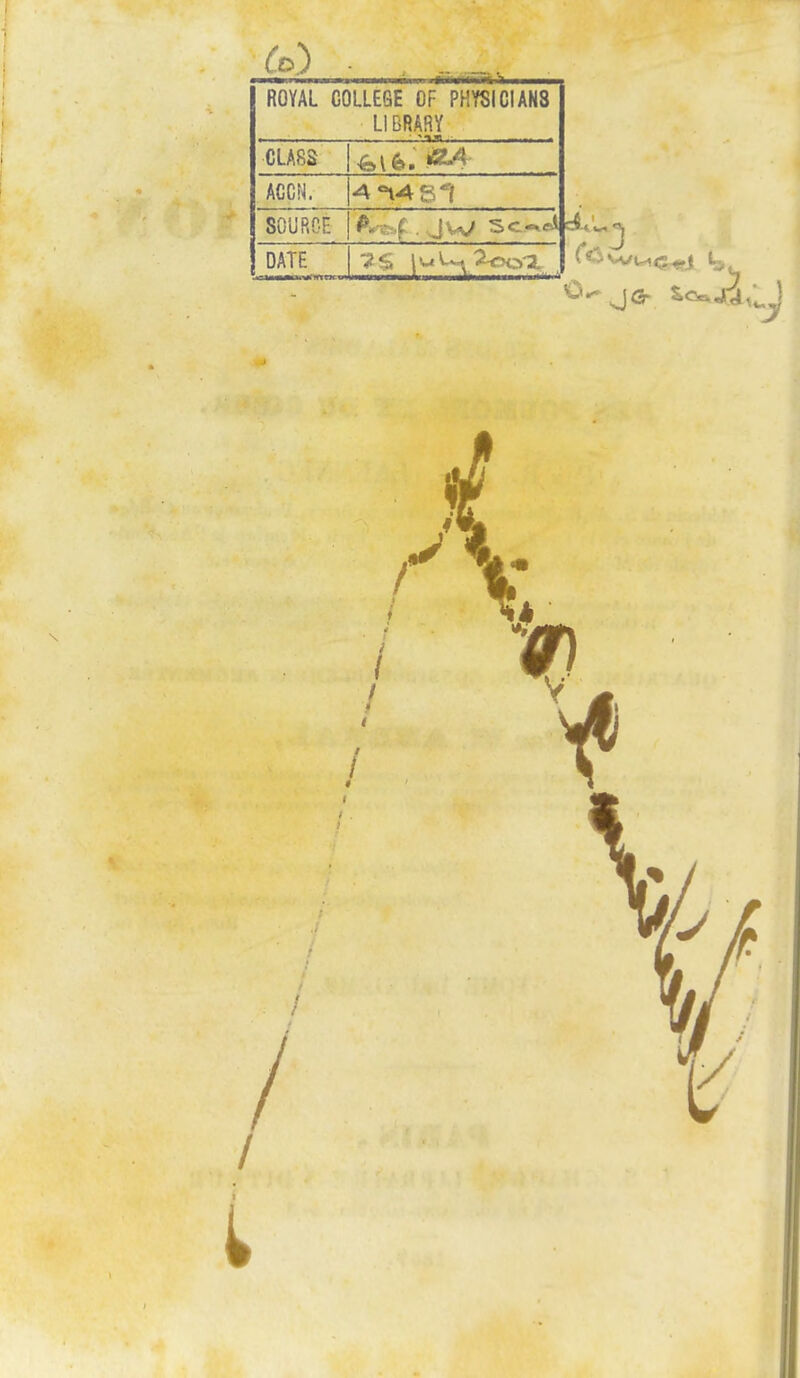 (D)
ROYAL COLLEGE OF PHYSICIANS
LIBRARY
CLASS 616.124
ACCN. 49489
SOURCE Prof. JW Scadding
DATE 25 July 2002 (Owned by
Dr JG Scadding)